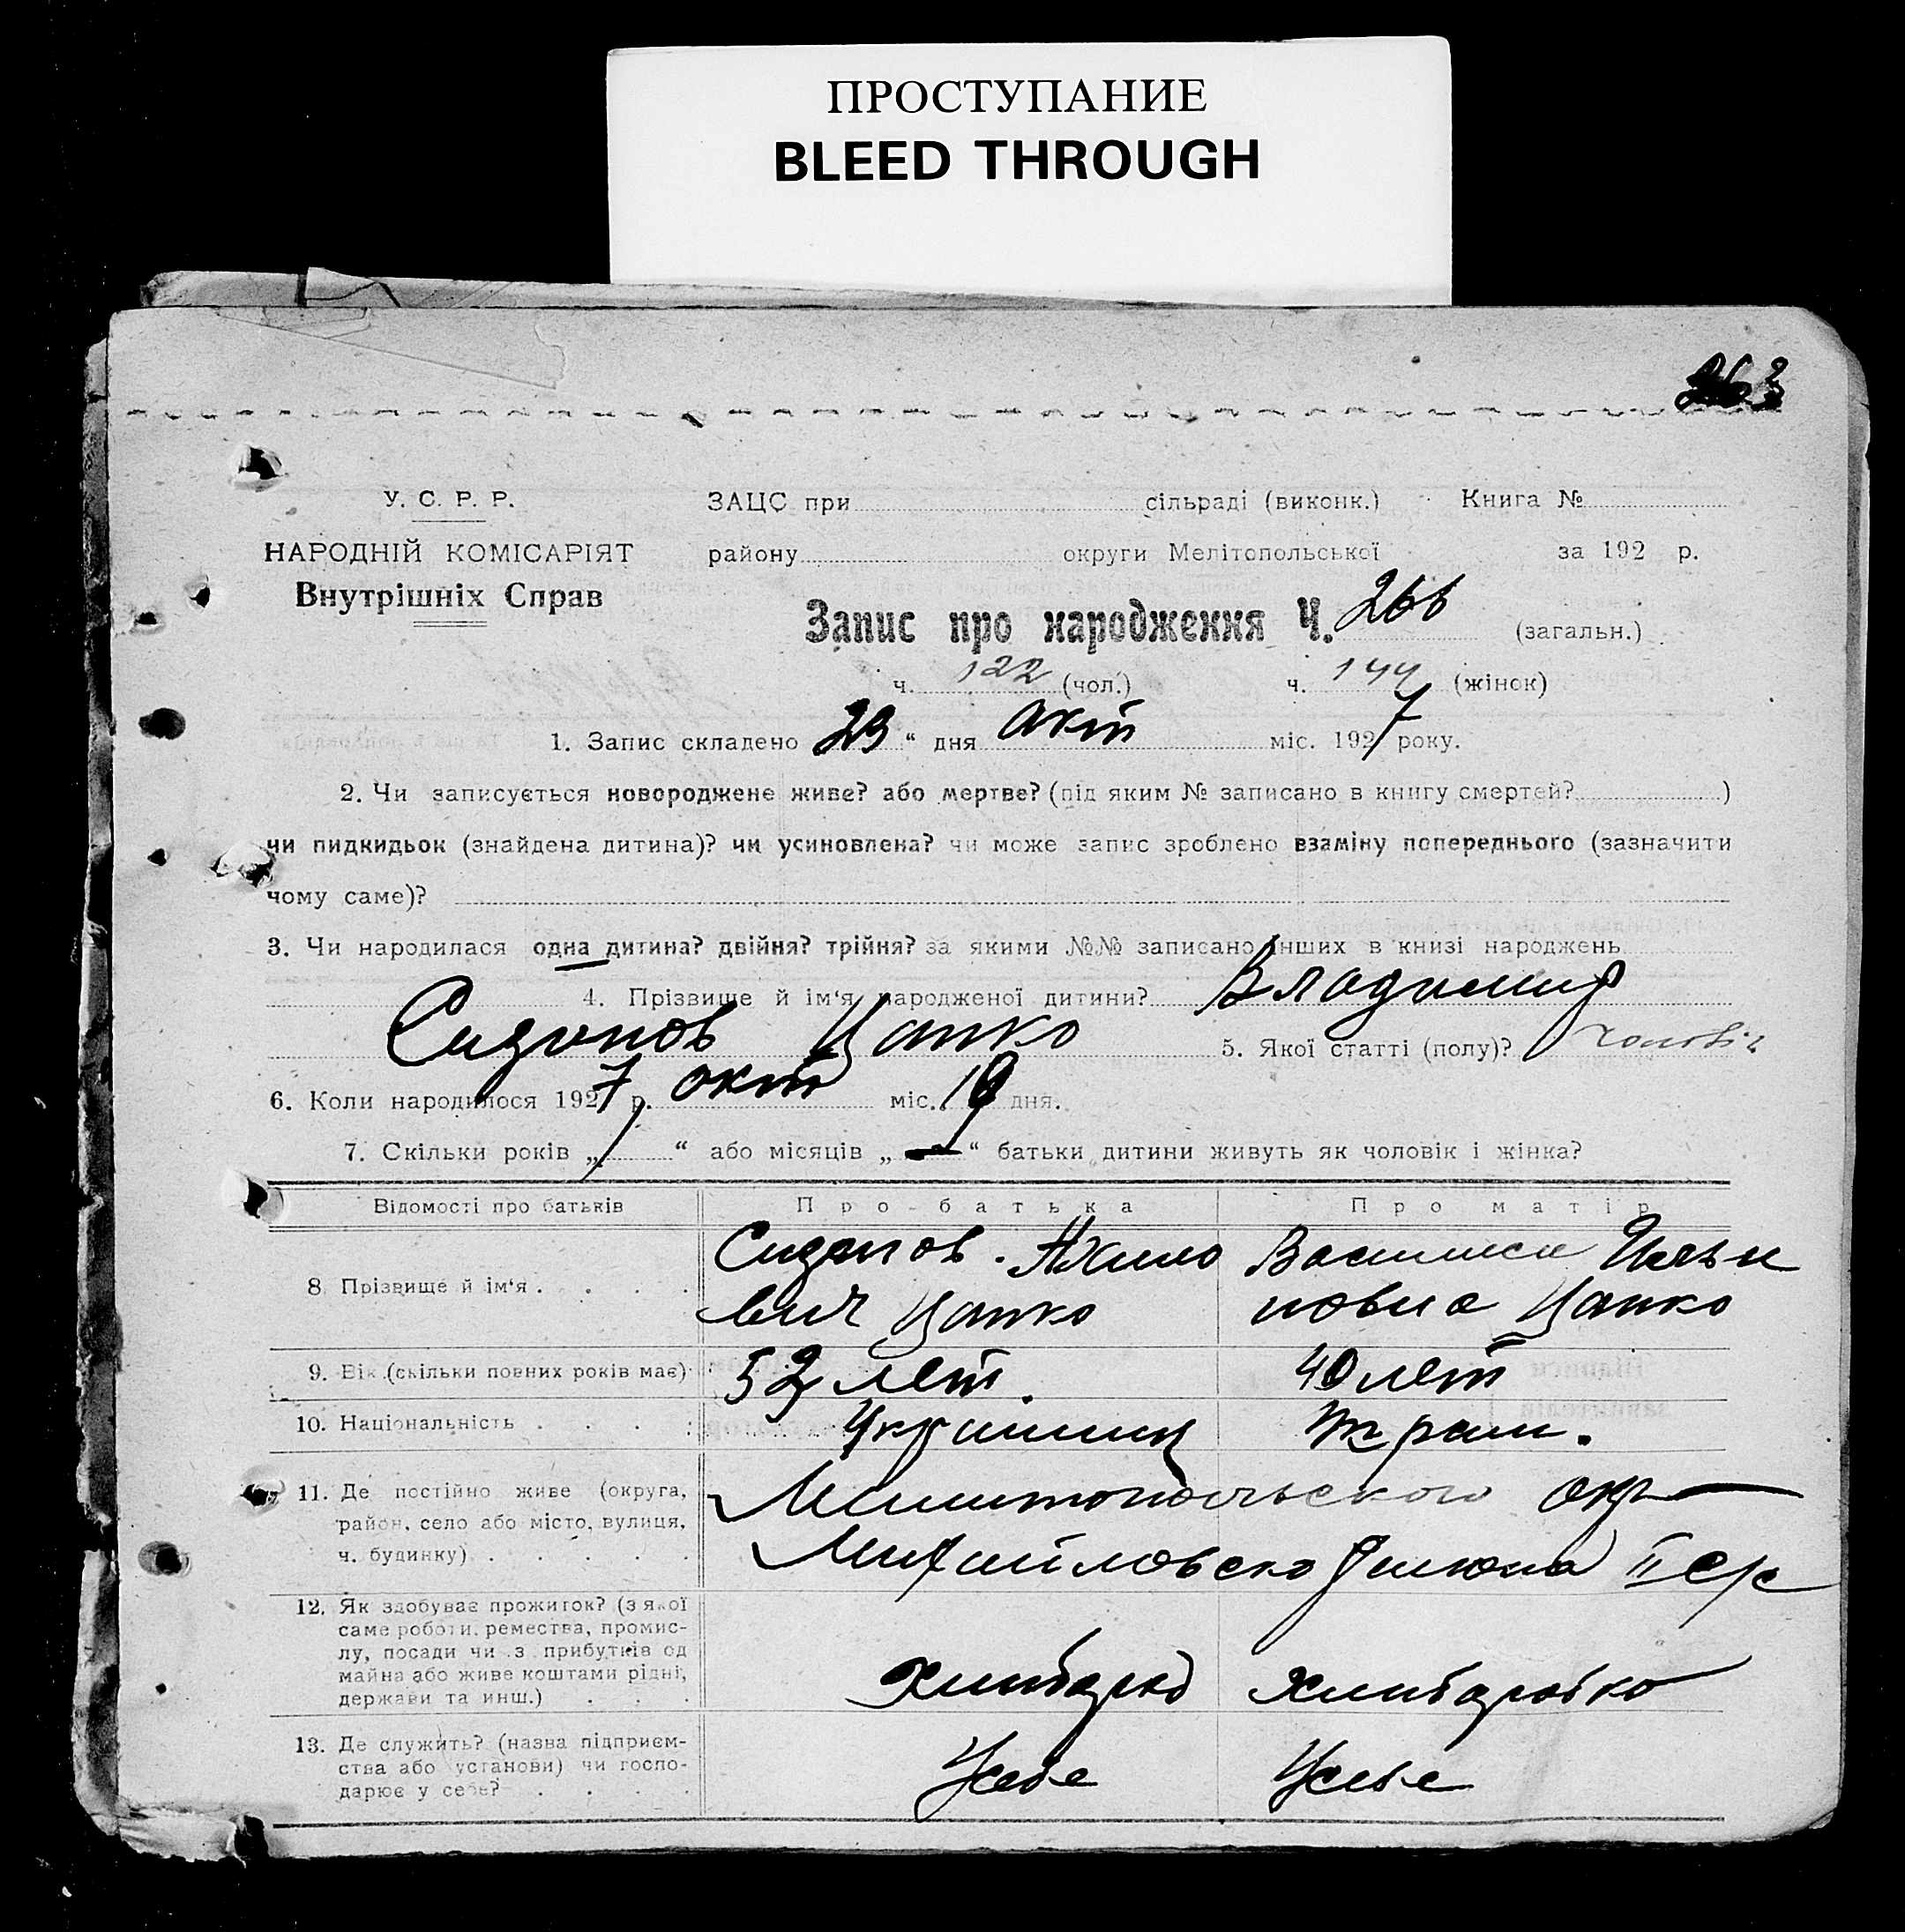 ПРОСТУПАНИЕ
BLEED THROUGH
У. С. Р. Р.
ЗАЦС при сільраді (виконк.) Книга №
НАРОДНІЙ КОМІСАРІЯТ
району округи Мелітопольської за 192 р.
Внутрішніх Справ
Запис про народження Ч. 266 (загальн.)
ч. 122 (чол.) ч. 144 (жінок)
1. Запис складено 29 “ дня Окт міс. 1927 року.
2. Чи записується новороджене живе? або мертве? (під яким № записано в книгу смертей? )
чи пидкидьок (знайдена дитина)? чи усиновлена? чи може запис зроблено взаміну попереднього (зазначити
чому саме)?
3. Чи народилася одна дитина? двійня? трійня? за якими №№ записано інших в книзі народжень
4. Прізвище й ім‘я народженої дитини? Владимир
Сидоров Цапко 5. Якої статті (полу)?
6. Коли народилося 1927 р. окт міс. дня.
7. Скільки років „ “ або місяців „ “ батьки дитини живуть як чоловік і жінка?
Відомості про батьків
Про батька
Про матір
8. Прізвище й ім‘я . . . .
вич Цапко
новна Цапко
9. Вік (скільки повних років має)
52 лет.
40 лет
10. Національність . . . .
Украинец
Украи.
11. Де постійно живе (округа,
район, село або місто, вулиця,
ч. будинку) . . . . .
Мелитопольского окр
Михайловско района II с/с
12. Як здобуває прожиток? (з якої
саме роботи, ремества, промис-
лу, посади чи з прибутків од
майна або живе коштами рідні,
держави та инш.) . . .
Хлибороб
Хлиборобко
13. Де служить? (назва підприєм-
ства або установи) чи госпо-
дарює у себе? . . . .
У себе
У себе